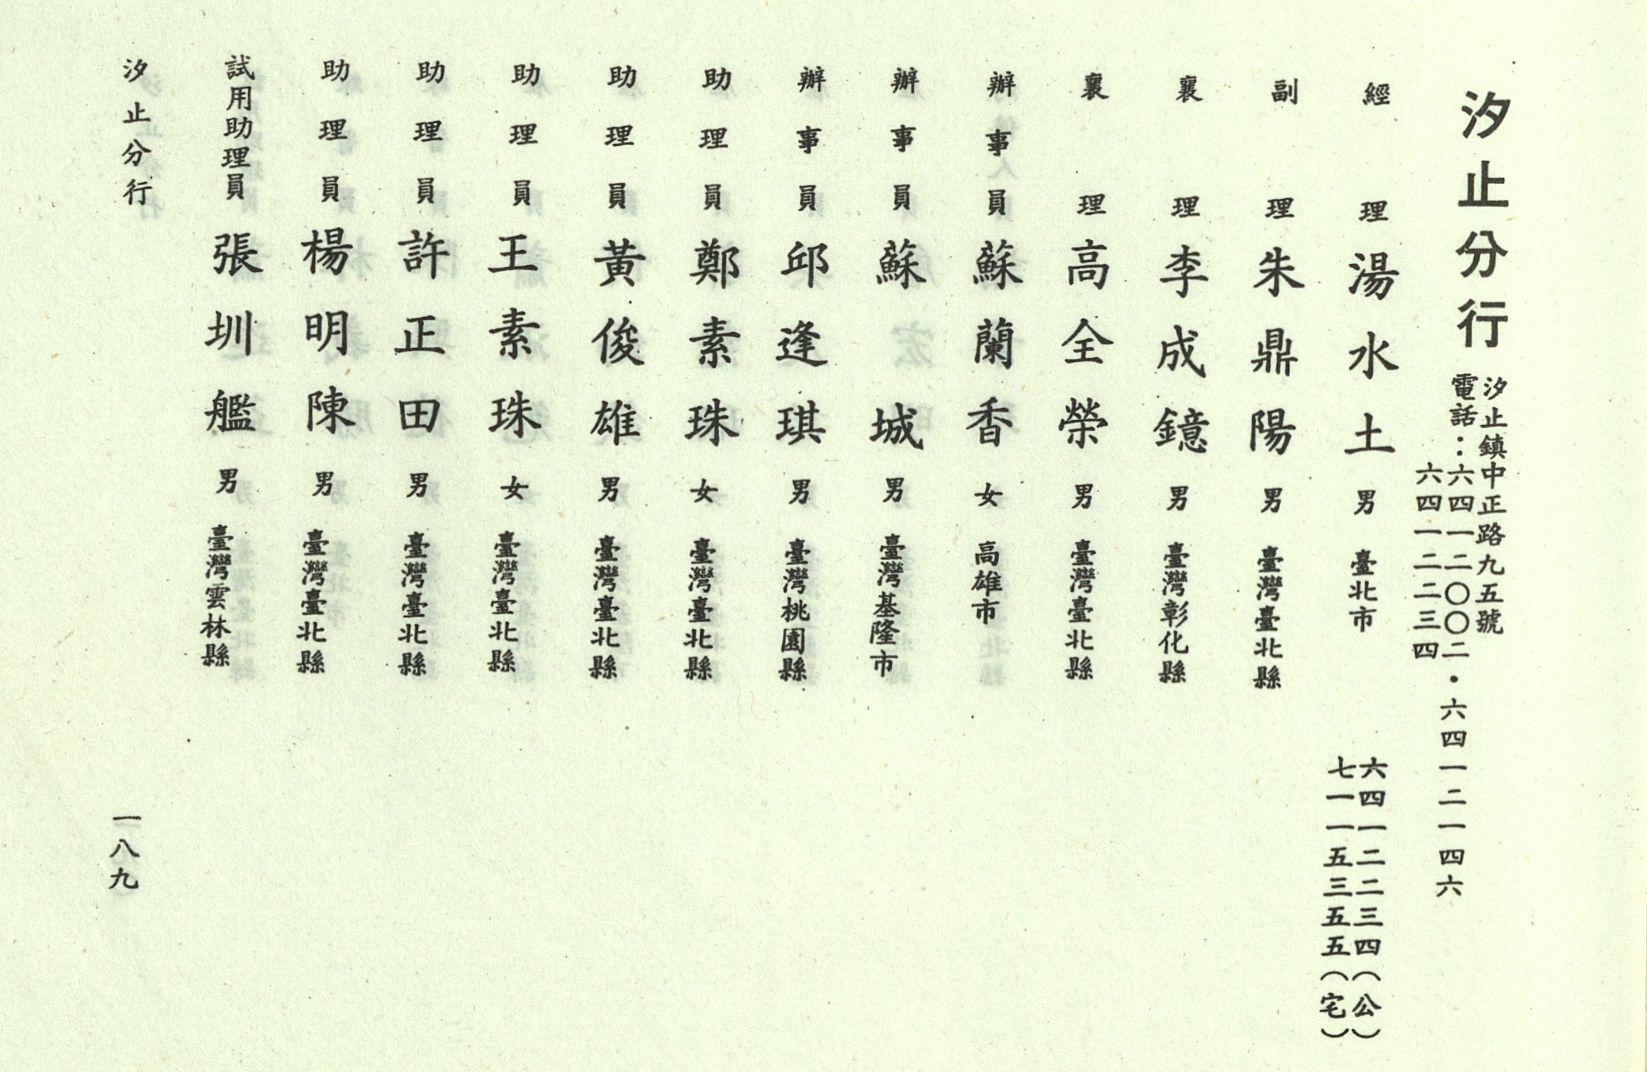 汐止分行
汐止鎮中正路九五號
電話：六四一二〇〇二・六四一二一四六
六四一二二三四
經理 湯水土 男 臺北市 六四一二二三四（公）
七一一五三五五（宅）
副理 朱鼎陽 男 臺灣臺北縣
襄理 李成鐿 男 臺灣彰化縣
襄理 高全榮 男 臺灣臺北縣
辦事員 蘇蘭香 女 高雄市
辦事員 蘇城 男 臺灣基隆市
辦事員 邱逢琪 男 臺灣桃園縣
助理員 鄭素珠 女 臺灣臺北縣
助理員 黃俊雄 男 臺灣臺北縣
助理員 王素珠 女 臺灣臺北縣
助理員 許正田 男 臺灣臺北縣
助理員 楊明陳 男 臺灣臺北縣
試用助理員 張圳艦 男 臺灣雲林縣
汐止分行
一八九